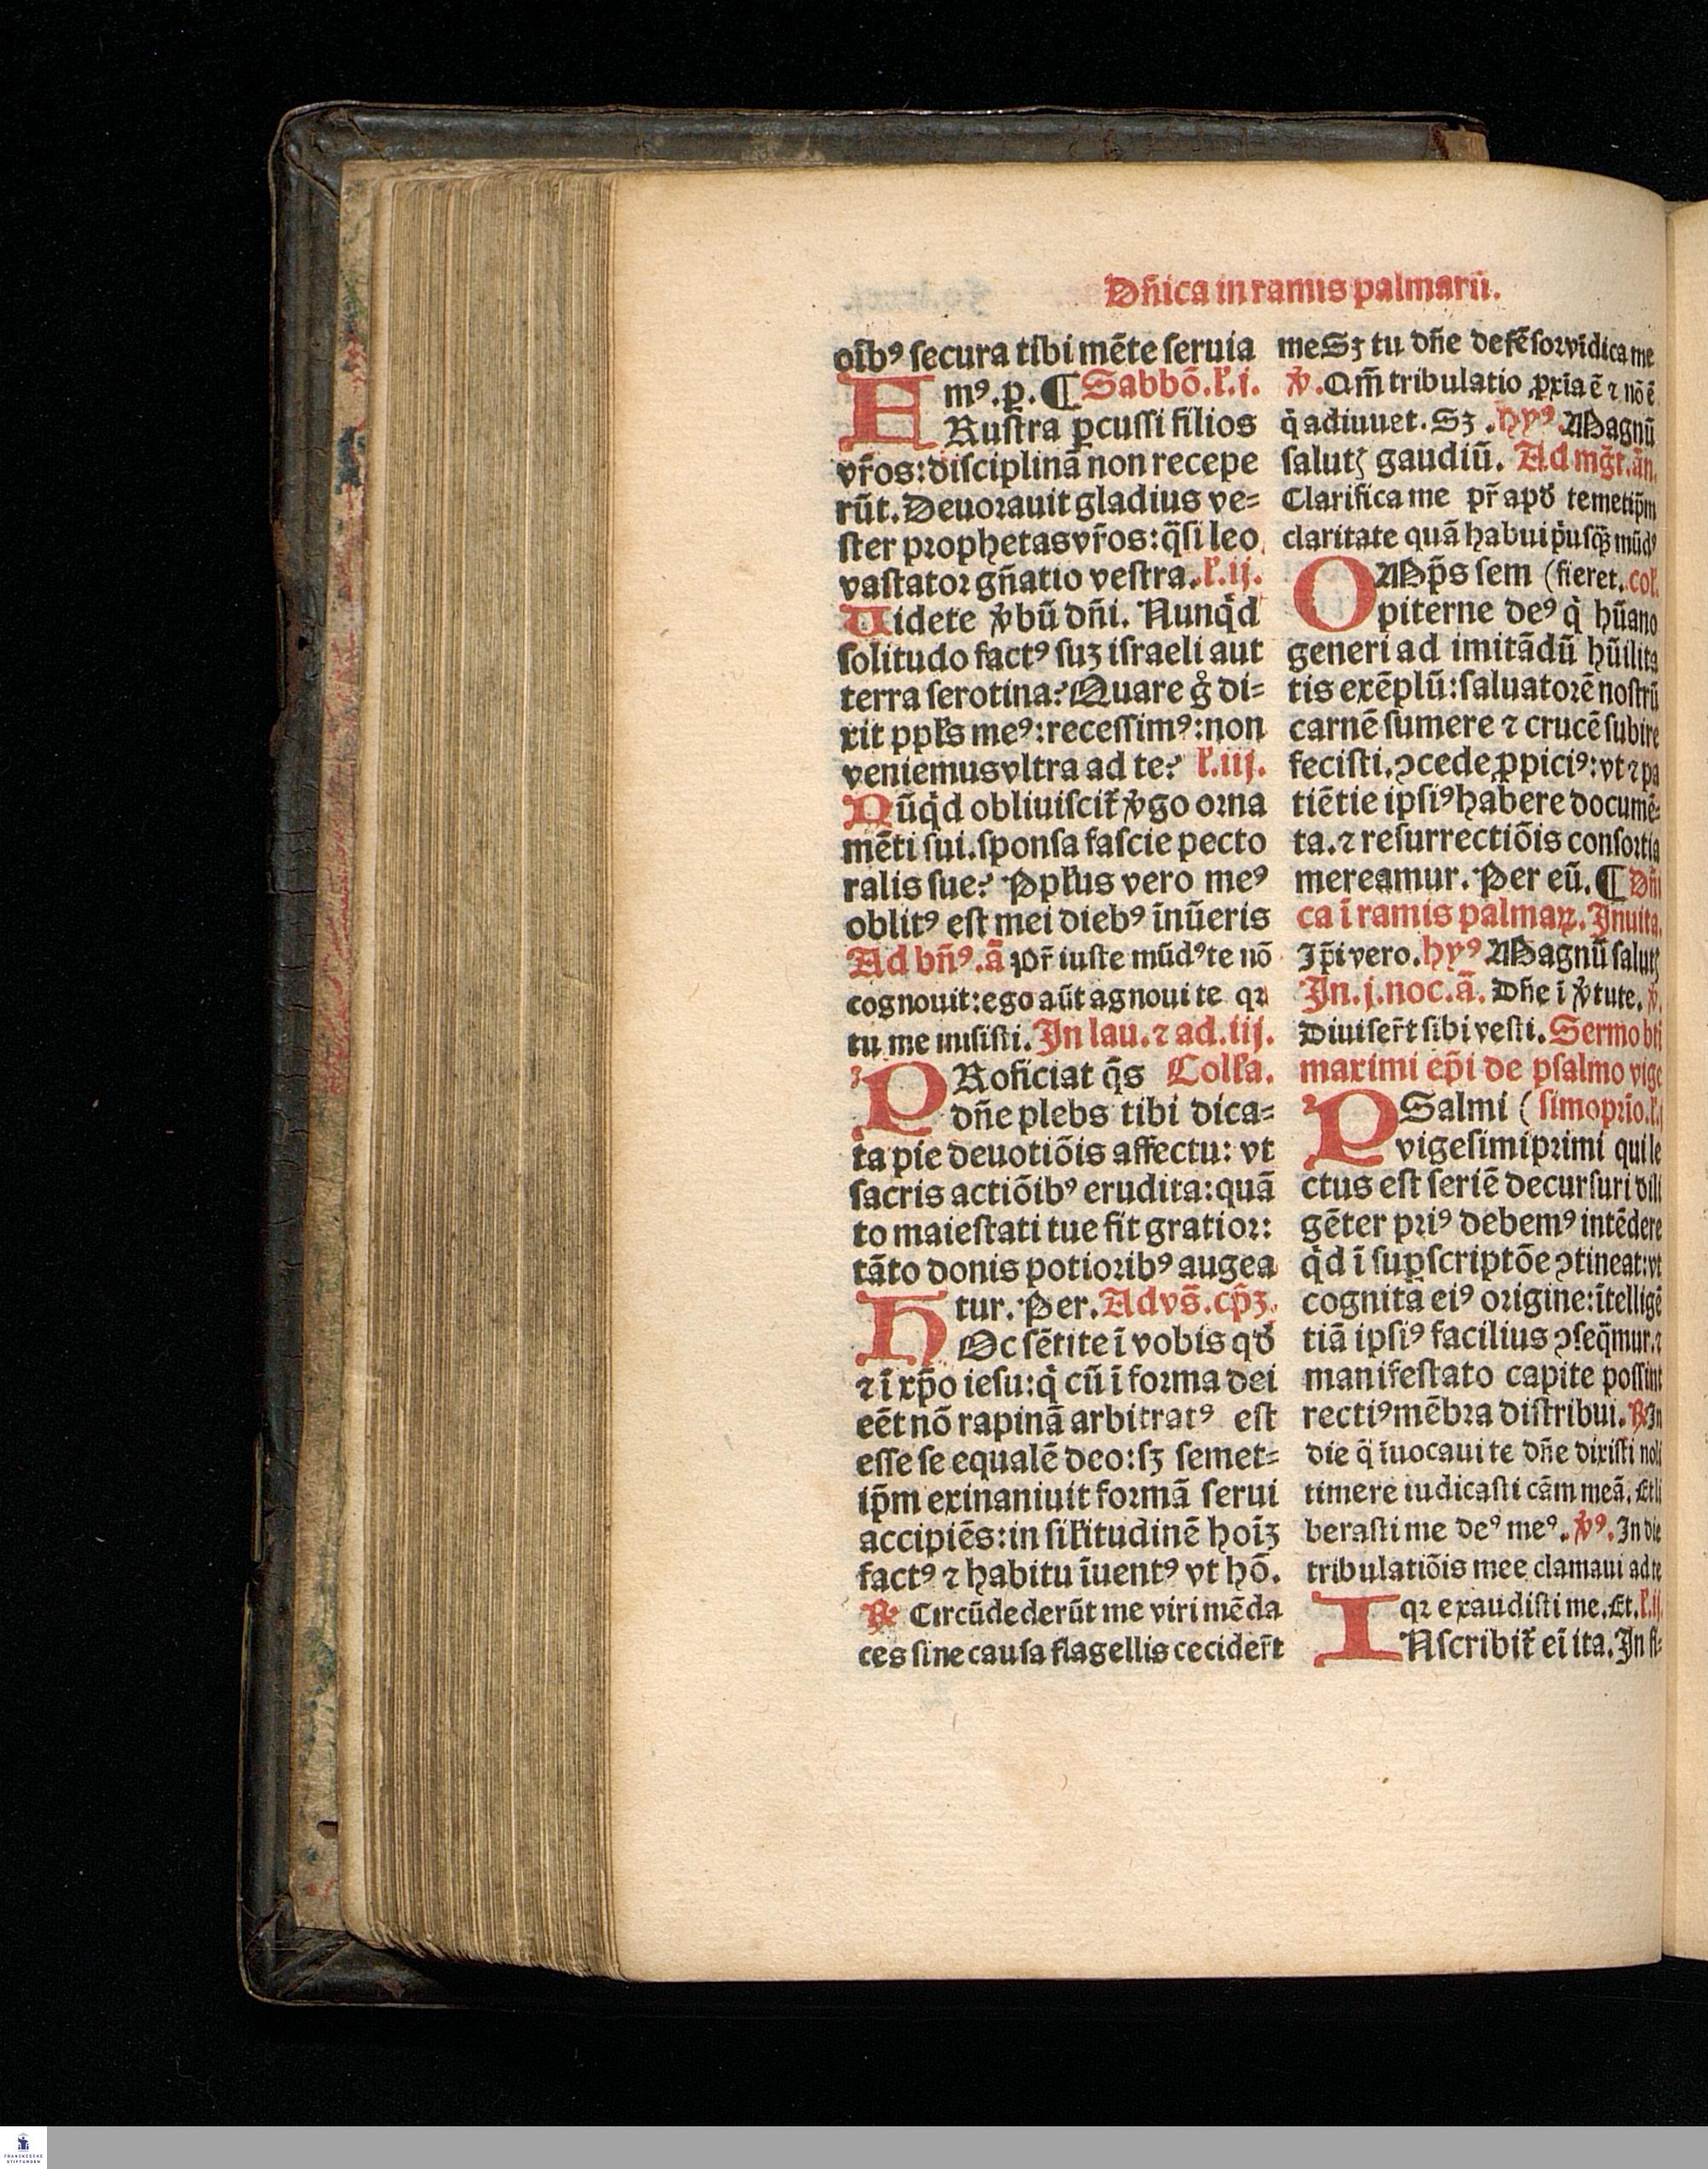 Dñica in ramis palmarū.
oībꝰ ſecura tibi mēte ſeruia
mꝰ.ꝑ. ¶ Sabbō.ł.i.
FRuſtra ꝑcuſſi filios
vr̄os:diſciplinā non recepe
rūt. Deuorauit gladius ve⸗
ſter prophetas vr̄os:q̄ſi leo
vaſtator gñatio veſtra. ł.ij.
Uidete v̾bū dñi. Nunqͥd
ſolitudo factꝰ ſuꝫ iſraeli aut
terra ſerotina? Quare gͦ di⸗
xit ppłs meꝰ:receſſimꝰ:non
veniemus vltra ad te? ł.iij.
Nūqͥd obliuiſcit̄ v̾go orna
mēti ſui. ſponſa faſcie pecto
ralis ſue? Ppłus vero meꝰ
oblitꝰ eſt mei diebꝰ īnūeris
Ad bñꝰ.ā Pr̄ iuſte mūdꝰ te nō
cognouit:ego aūt agnoui te qꝛ
tu me miſiſti. In lau.⁊ ad.iij.
PRoficiat q̄s Colła.
dñe plebs tibi dica⸗
ta pie deuotiōis affectu: vt
ſacris actiōibꝰ erudita:quā
to maieſtati tue fit gratior:
tāto donis potioribꝰ augea
tur. Per. Ad vs̄. cp̄ꝫ.
HOc ſētite ī vobis qď
⁊ ī xp̄o ieſu:qͥ cū ī forma dei
eēt nō rapinā arbitratꝰ eſt
eſſe ſe equalē deo:ſꝫ ſemet⸗
ip̄m exinaniuit formā ſerui
accipiēs:in ſiłitudinē hoīꝫ
factꝰ ⁊ habitu īuentꝰ vt hō.
℟ Circūdederūt me viri mēda
ces ſine cauſa flagellis cecider̄t
me Sꝫ tu dñe defēſor vīdica me
v̾. Qm̄ tribulatio ꝓxīa ē ⁊ nō ē
qͥ adiuuet. Sꝫ. hyꝰ Magnū
ſalutꝭ gaudiū. Ad mḡt.ān.
Clarifica me pr̄ apď temetip̄m
claritate quā habui pͥuſq̄ꝫ mūdꝰ
OMp̄s ſem (fieret. coł.
piterne deꝰ qͥ hūano
generi ad imitādū hūilita
tis exēplū:ſaluatorē noſtrū
carnē ſumere ⁊ crucē ſubire
feciſti. ꝯcede ꝓpiciꝰ:vt ⁊ pa
tiētie ipſiꝰ habere documē⸗
ta. ⁊ reſurrectiōis conſortia
mereamur. Per eū. ¶ Dñi
ca ī ramis palmaꝝ. Inuita.
Ip̄i vero. hyꝰ Magnū ſalutꝭ
In.j.noc.ā. Dñe ī v̾tute. v̾.
Diuiſer̄t ſibi veſti. Sermo bti
maximi ep̄i de pſalmo vige
PSalmi (ſimoprīo.ł.i
vigeſimiprimi qui le
ctus eſt ſeriē decurſuri dili
gēter priꝰ debemꝰ intēdere
qͥd ī ſupſcriptōe ꝯtineat:vt
cognita eiꝰ origine:ītelligē
tiā ipſiꝰ facilius ꝯſeq̄mur.⁊
manifeſtato capite poſſint
rectiꝰ mēbra diſtribui. ℟ In
die q̄ īuocaui te dñe dixiſti noli
timere iudicaſti cām meā. Et li
beraſti me deꝰ meꝰ. v̾ꝰ. In die
tribulatiōis mee clamaui ad te
qꝛ exaudiſti me. Et. ł.ij
INſcribit̄ ei ita. In fi⸗
FRANCKESCHE
STIFTUNGEN